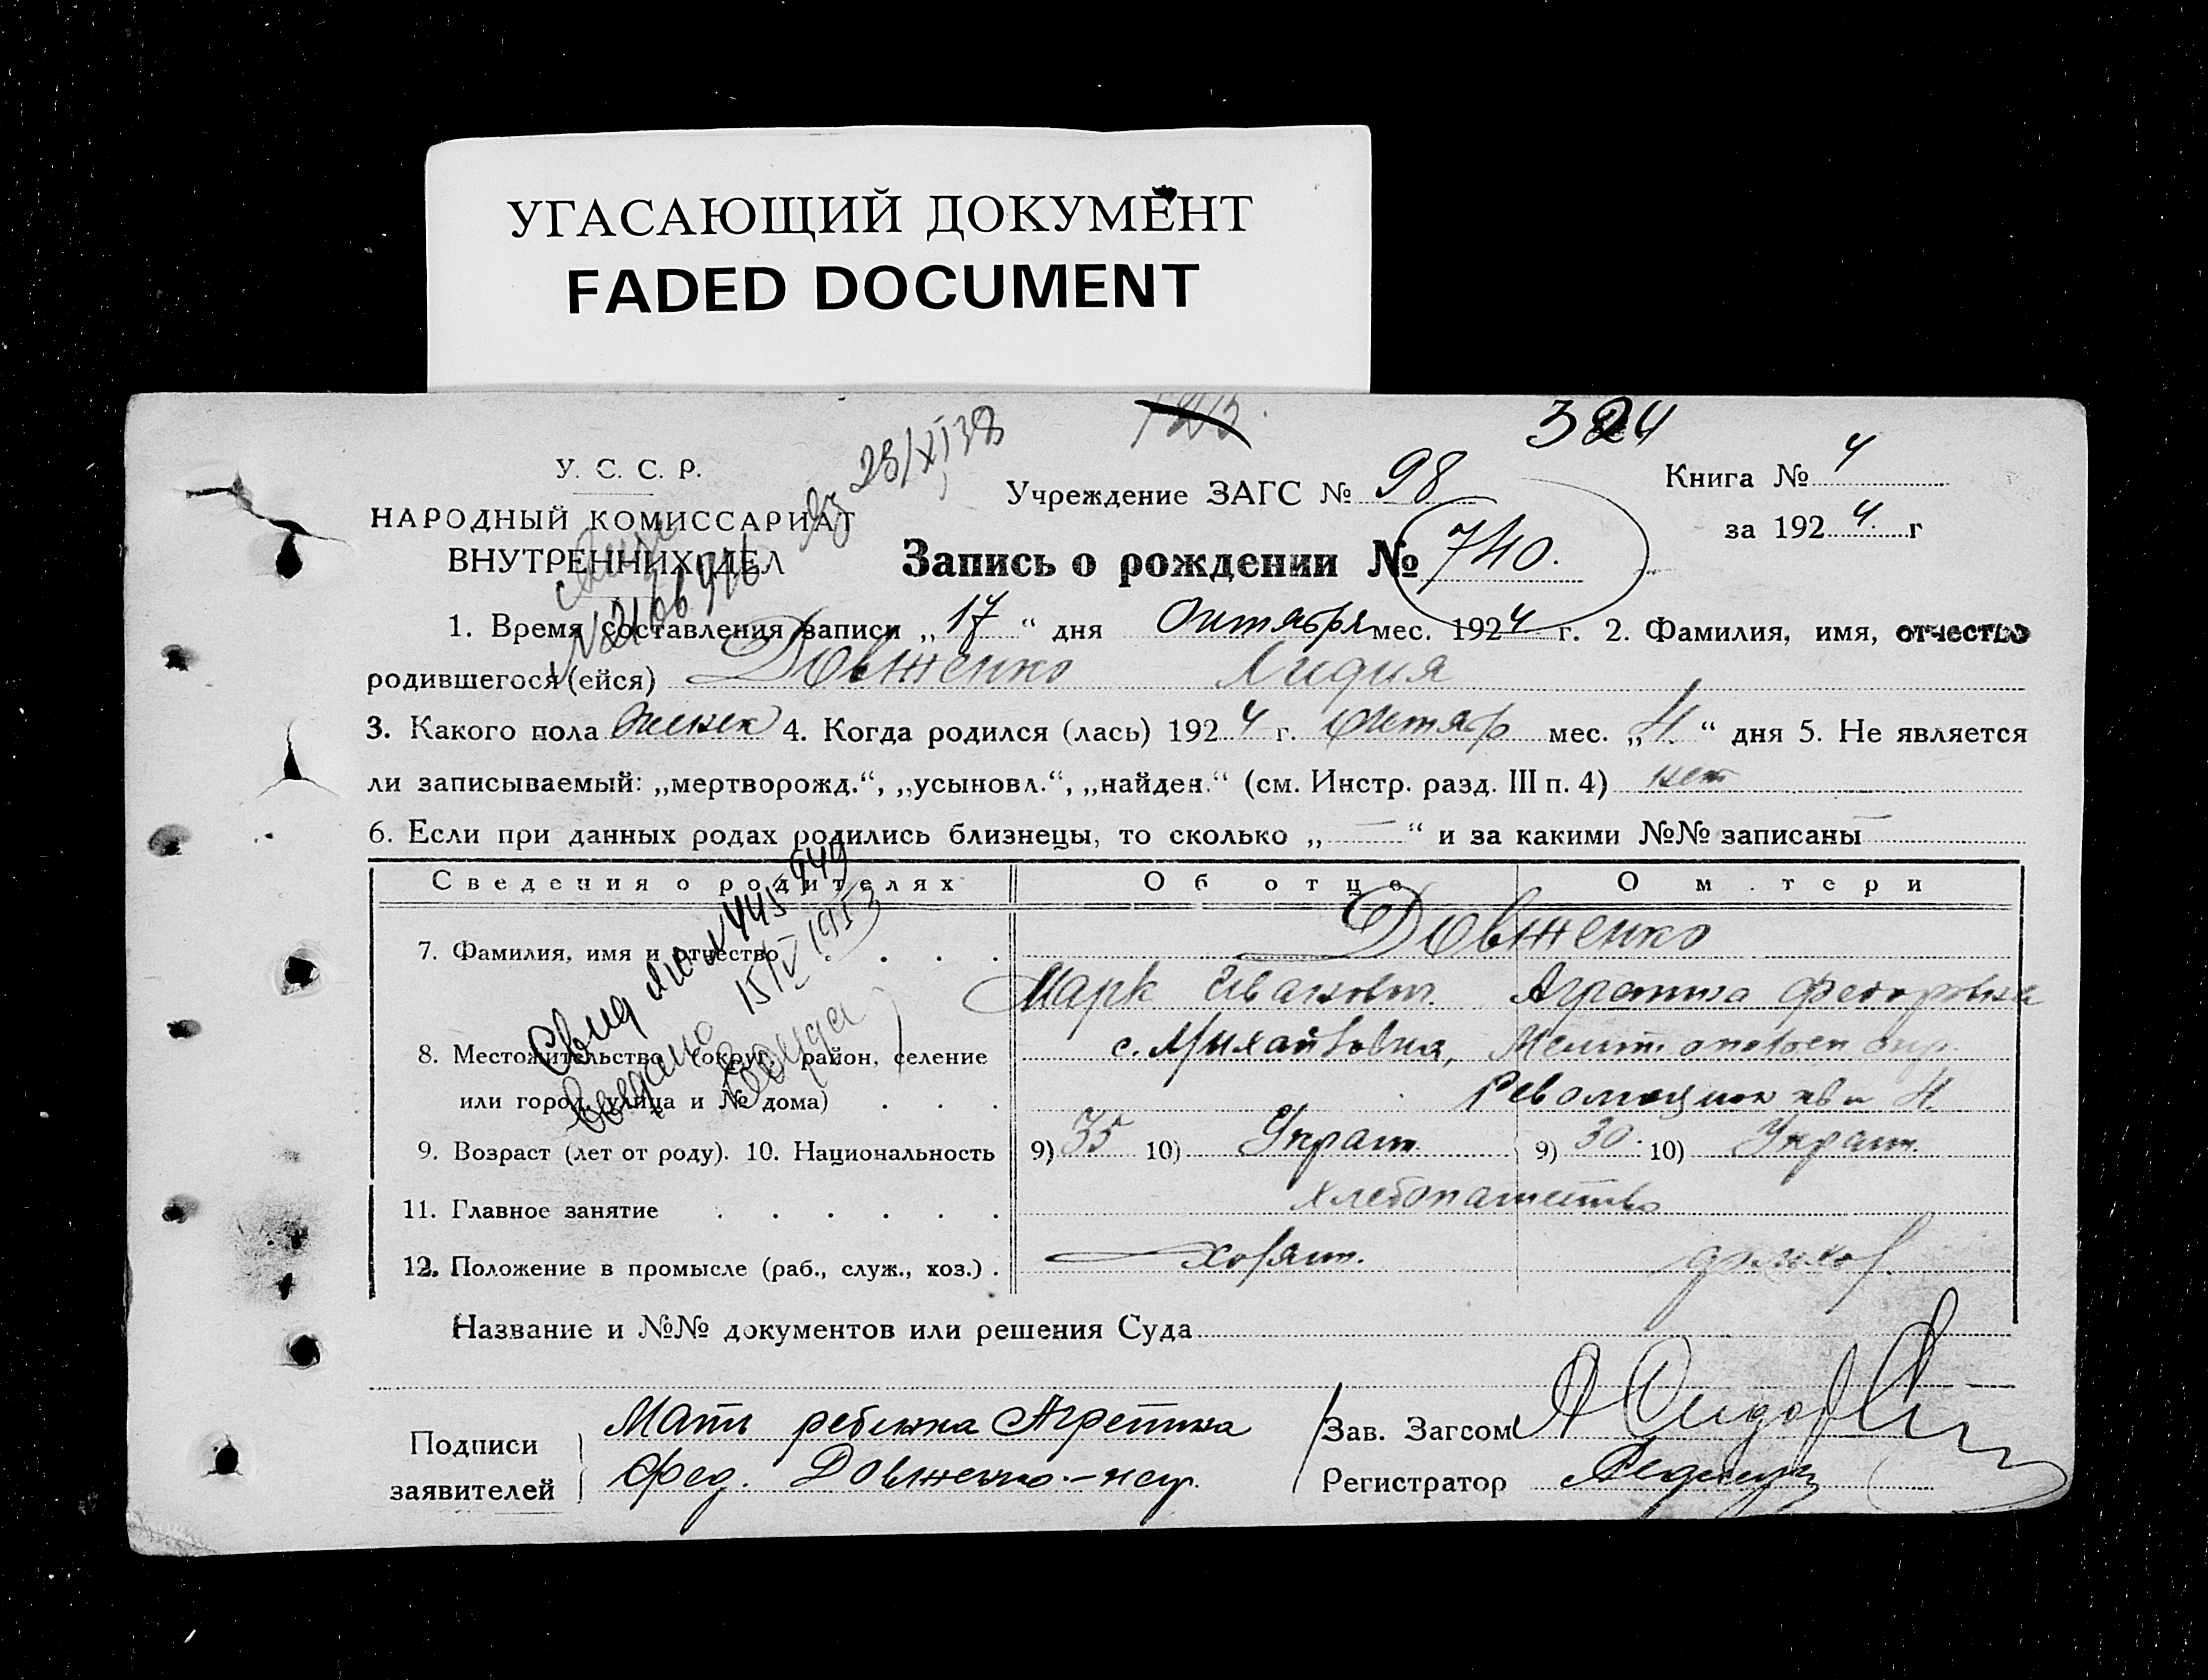 УГАСАЮЩИЙ ДОКУМЕНТ
FADED DOCUMENT
324
У. С. С. Р.
НАРОДНЫЙ КОМИССАРИАТ
ВНУТРЕННИХ ДЕЛ
23/XI 38
№ 2166976
Учреждение ЗАГС № 98
Книга № 4
за 1924 г
Запись о рождении № 740.
1. Время составления записи „17“ дня Октября мес. 1924 г. 2. Фамилия, имя, отчество
родившегося (ейся) Довженко Лидия
3. Какого пола женск 4. Когда родился (лась) 1924 г. Октяб мес. „4“ дня 5. Не является
ли записываемый: „мертворожд.“, „усыновл.“, „найден.“ (см. Инстр. разд. III п. 4) нет
6. Если при данных родах родились близнецы, то сколько „—“ и за какими №№ записаны —
Сведения о родителях Об отце О м . тери
7. Фамилия, имя и отчество . . . . Довженко
Марк Иванович. Агрепина Федоровна
8. Местожительство (округ, район, селение с. Михайловка, Мелитопольск окр.
или город, улица и № дома) . . .
9. Возраст (лет от роду). 10. Национальность 9) 35 10) Украин. 9) 30. 10) Украин.
11. Главное занятие . . . . . . Хлебопашество
12. Положение в промысле (раб., служ., хоз.) . хозяин.
Свид 445949
Выдано 15/V 1953
Название и №№ документов или решения Суда
Подписи
заявителей
Мать ребенка Агрепина
Фед. Довженко - негр.
Зав. Загсом
Регистратор